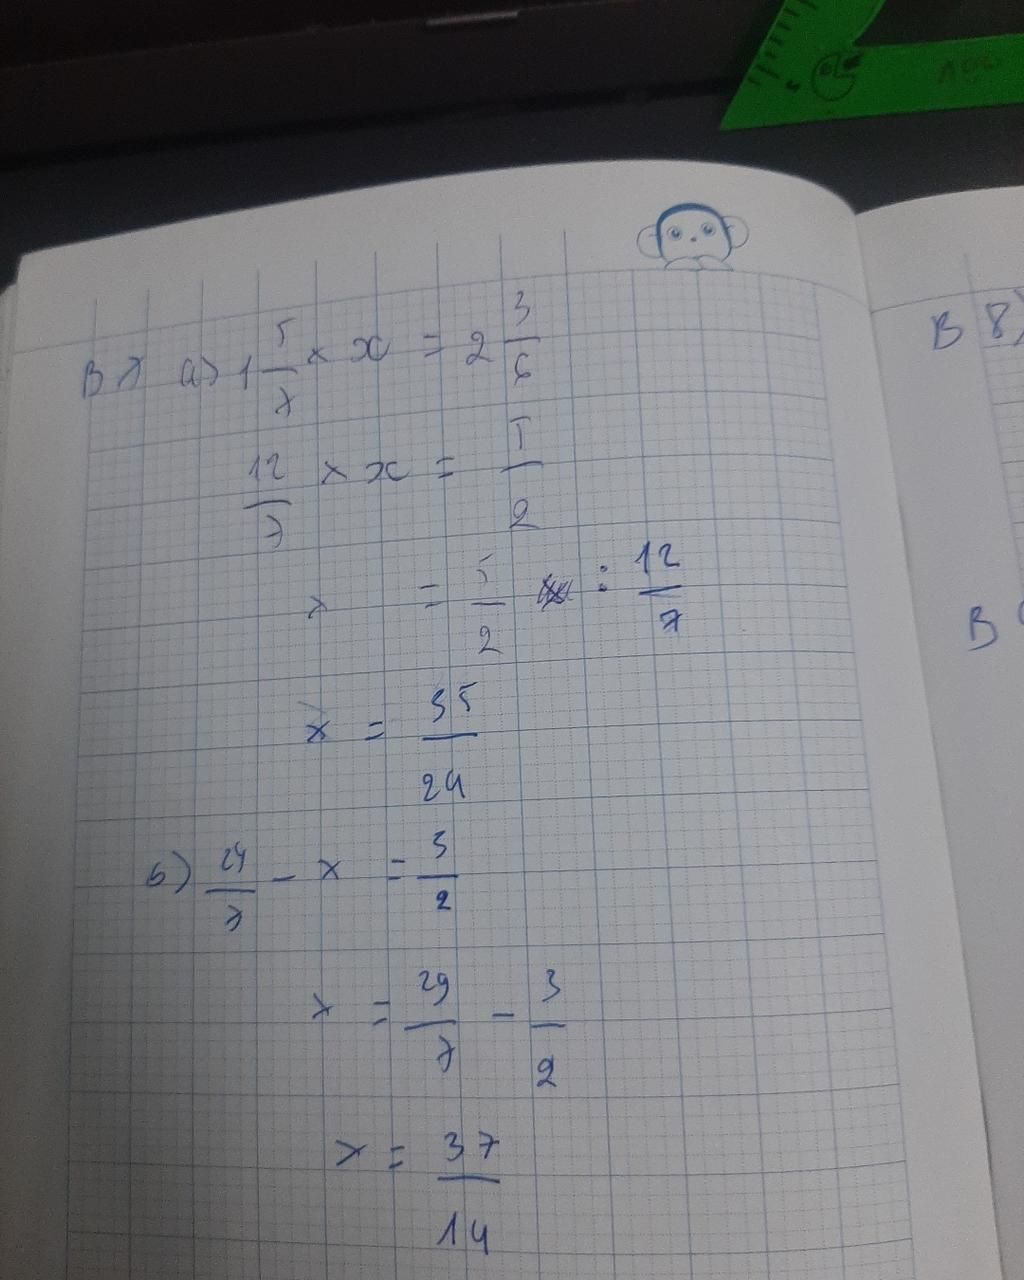 B7 a) 1 5/7 × x = 2 3/6
12/7 × x = 5/2
x = 5/2 : 12/7
x = 35/24
b) 29/7 - x = 3/2
x = 29/7 - 3/2
x = 37/14
B 8)
B